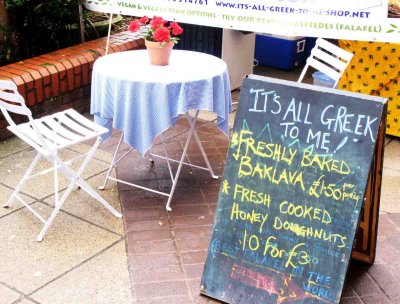 WWW.ITS-ALL-GREEK-TO-ME-SHOP.NET
VEGAN & VEGETARIAN OPTIONS - TRY OUR REVITHOKEFTEDES (FALAFEL)
IT'S ALL GREEK
TO ME!
* FRESHLY BAKED
BAKLAVA £1.50 PER
* FRESH COOKED
HONEY DOUGHNUTS
10 FOR £3
IN THE
WORLD